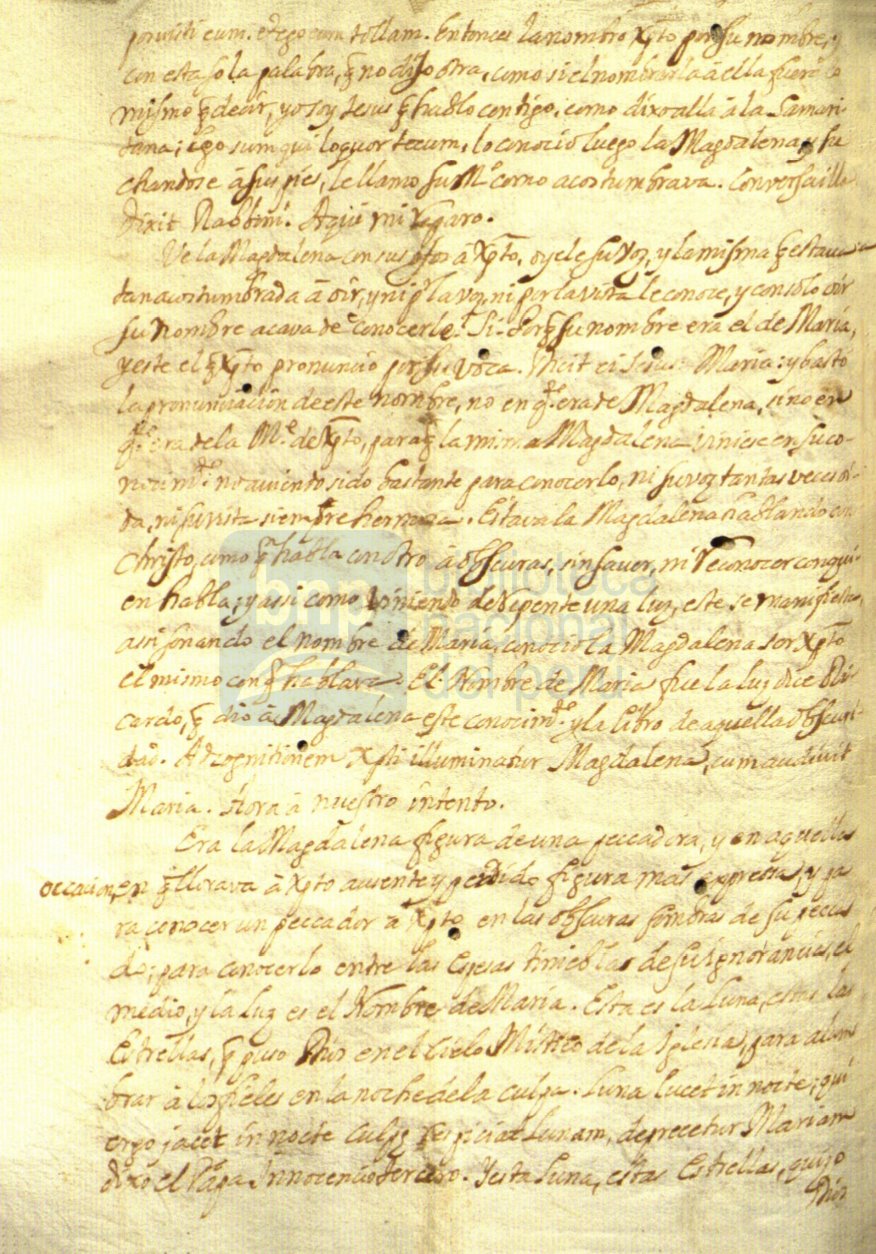 posuisti eum. et ego eum tollam. Entonces la nombro Xp̃to por su nombre, y
con esta sola palabra, q̃ no dijo otra, como si el nombrarla à ella fuera lo
mismo q̃ decir, yo soy Jesus q̃ hablo contigo, como dixo alla à la Samari-
tana; Ego sum qui loquor tecum, lo conocio luego la Magdalena, y
chandose à sus pies, le llamo su Mº como acostumbrava. Conversa illa
dixit Rabboni. Aqui mi reparo.
Ve la Magdalena con sus ojos à Xp̃to, oyele su voz, y la misma q̃ estava
tan acostumbrada à oir, y ni pr la voz, ni por la vista le conoce, y con solo oir
su nombre acava de conocerle? Si. Porq̃ su nombre era el de Maria,
y este el q̃ Xp̃to pronuncio por su voca. Dicit ei Jesus: Maria: y bastó
la pronunciacion de este nombre, no en qto era de Magdalena, sino en
qto era de la Me de Xp̃to, para q̃ la misma Magdalena viniese en su co-
nocimto no aviendo sido bastante para conocerlo, ni su voz tantas veces oi-
da, ni su vista siempre hermosa. Estava la Magdalena hablando con
Christo, como q̃ habla con otro à obscuras, sin saver, ni reconocer con qui-
en habla; y assi como viniendo de repente una luz, este se manifiesta,
assi sonando el nombre de Maria, conocio la Magdalena ser Xp̃to
el mismo con q̃ hablava. El Nombre de Maria fue la luz dice Ri-
cardo, q̃ dio à Magdalena este conocimto y la libro de aquella obscuri-
dad. Ad cognitionem Xp̃ti illuminatur Magdalena, cum audivit
Maria. Aora à nuestro intento.
Era la Magdalena figura de una peccadora, y en aquella
occacion, en q̃ llorava à Xp̃to ausente y perdido figura mas expressa, y pa
ra conocer un peccador à Xp̃to en las obscuras sombras de su pecca
do; para conocerlo entre las espesas tinieblas de su ignorancia, el
medio, y la luz es el Nombre de Maria. Esta es la Luna, estas las
Estrellas, q̃ puso Dios en el cielo Mistico de la Iglesia, para alum
brar à los fieles en la noche de la culpa. Luna lucet in nocte; qui
ergo jacet in nocte culpę respiciat Lunam, deprecetur Mariam
dixo el Papa Innocencio Tercero. Y esta Luna, estas Estrellas, quiso
Dios
bnp biblioteca
nacional
del perú